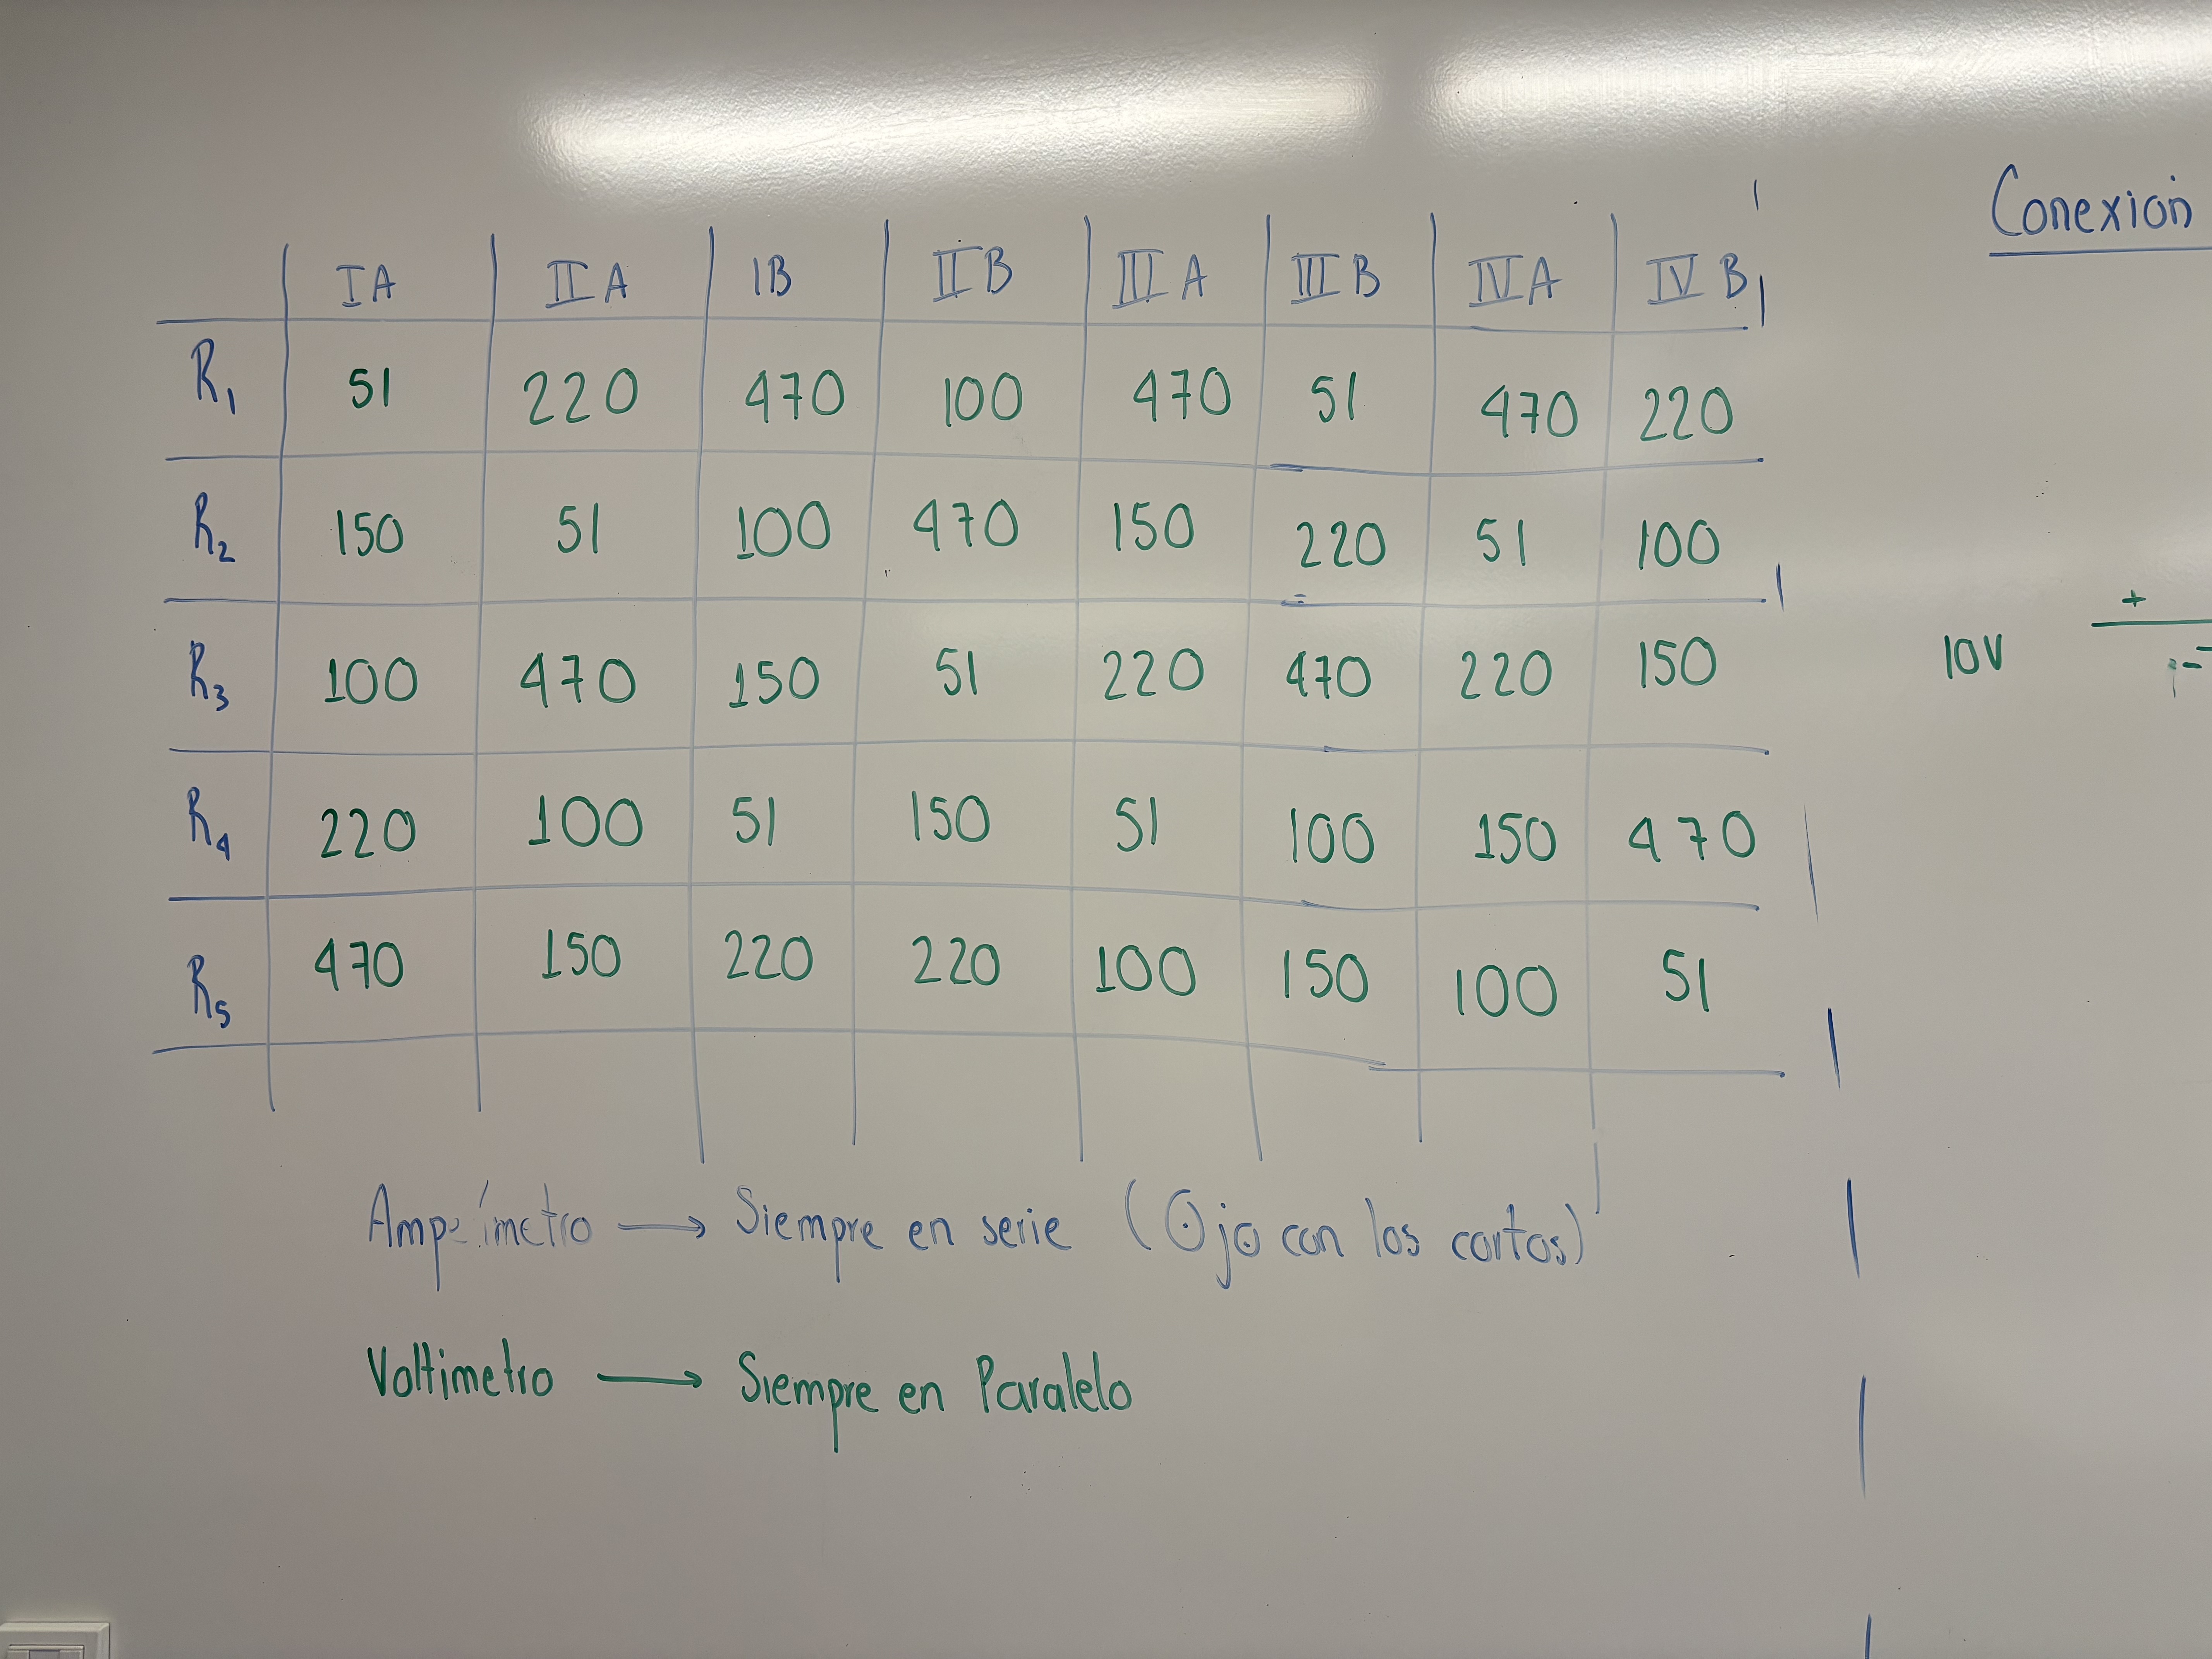 IA IIA 1B IIB IIIA IIIB IVA IVB
R1 51 220 470 100 470 51 470 220
R2 150 51 100 470 150 220 51 100
R3 100 470 150 51 220 470 220 150
R4 220 100 51 150 51 100 150 470
R5 470 150 220 220 100 150 100 51
Amperímetro → Siempre en serie (Ojo con los cortos)
Voltimetro → Siempre en Paralelo
Conexión
+
10V